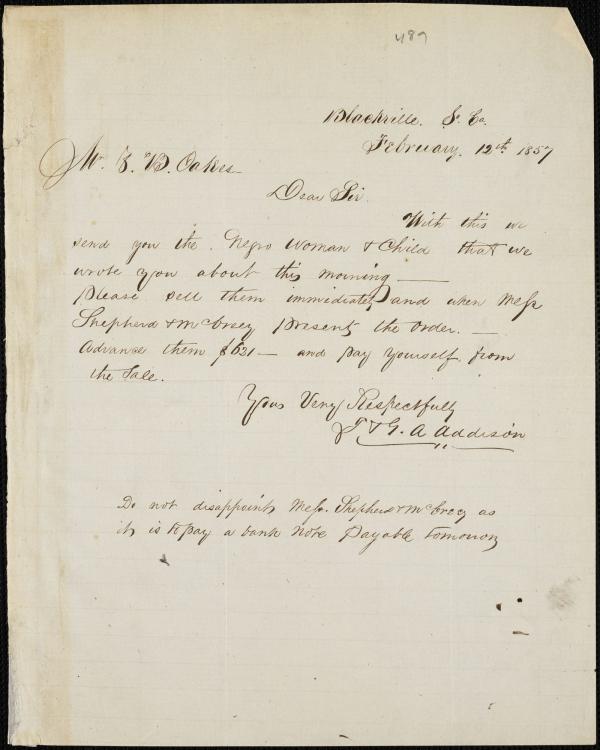 489
Blackville. S. Ca.
February. 12th 1857
Mr. Z. B. Oakes
Dear Sir.
With this we
send you the. Negro Woman & Child that we
wrote you about this morning —
please sell them immediately and when Mess
Shepherd & McCreey present the order. —
Advance them $621 — and pay yourself from
the Sale.
Yours Very Respectfully
J & G. A Addison
Do not disappoint Mess. Shepherd & McCreey as
it is to pay a bank Note payable tomorrow